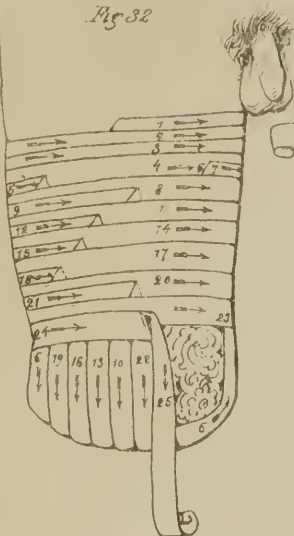 Fig 32
1
2
3
4 6 7
5 8
9 1
12 14
15 17
18 20
21
24 23
6 19 16 13 10 22 25
6